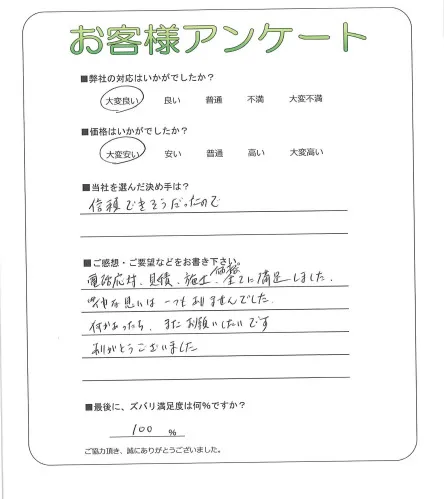 お客様アンケート
■弊社の対応はいかがでしたか？
大変良い 良い 普通 不満 大変不満
■価格はいかがでしたか？
大変安い 安い 普通 高い 大変高い
■当社を選んだ決め手は？
信頼できそうだったので
■ご感想・ご要望などをお書き下さい。
電話応対、見積、施工、価格 全てに満足しました。
な思いは一つもありませんでした。
何かあったら、またお願いしたいです
ありがとうございました
■最後に、ズバリ満足度は何%ですか？
100 %
ご協力頂き、誠にありがとうございました。